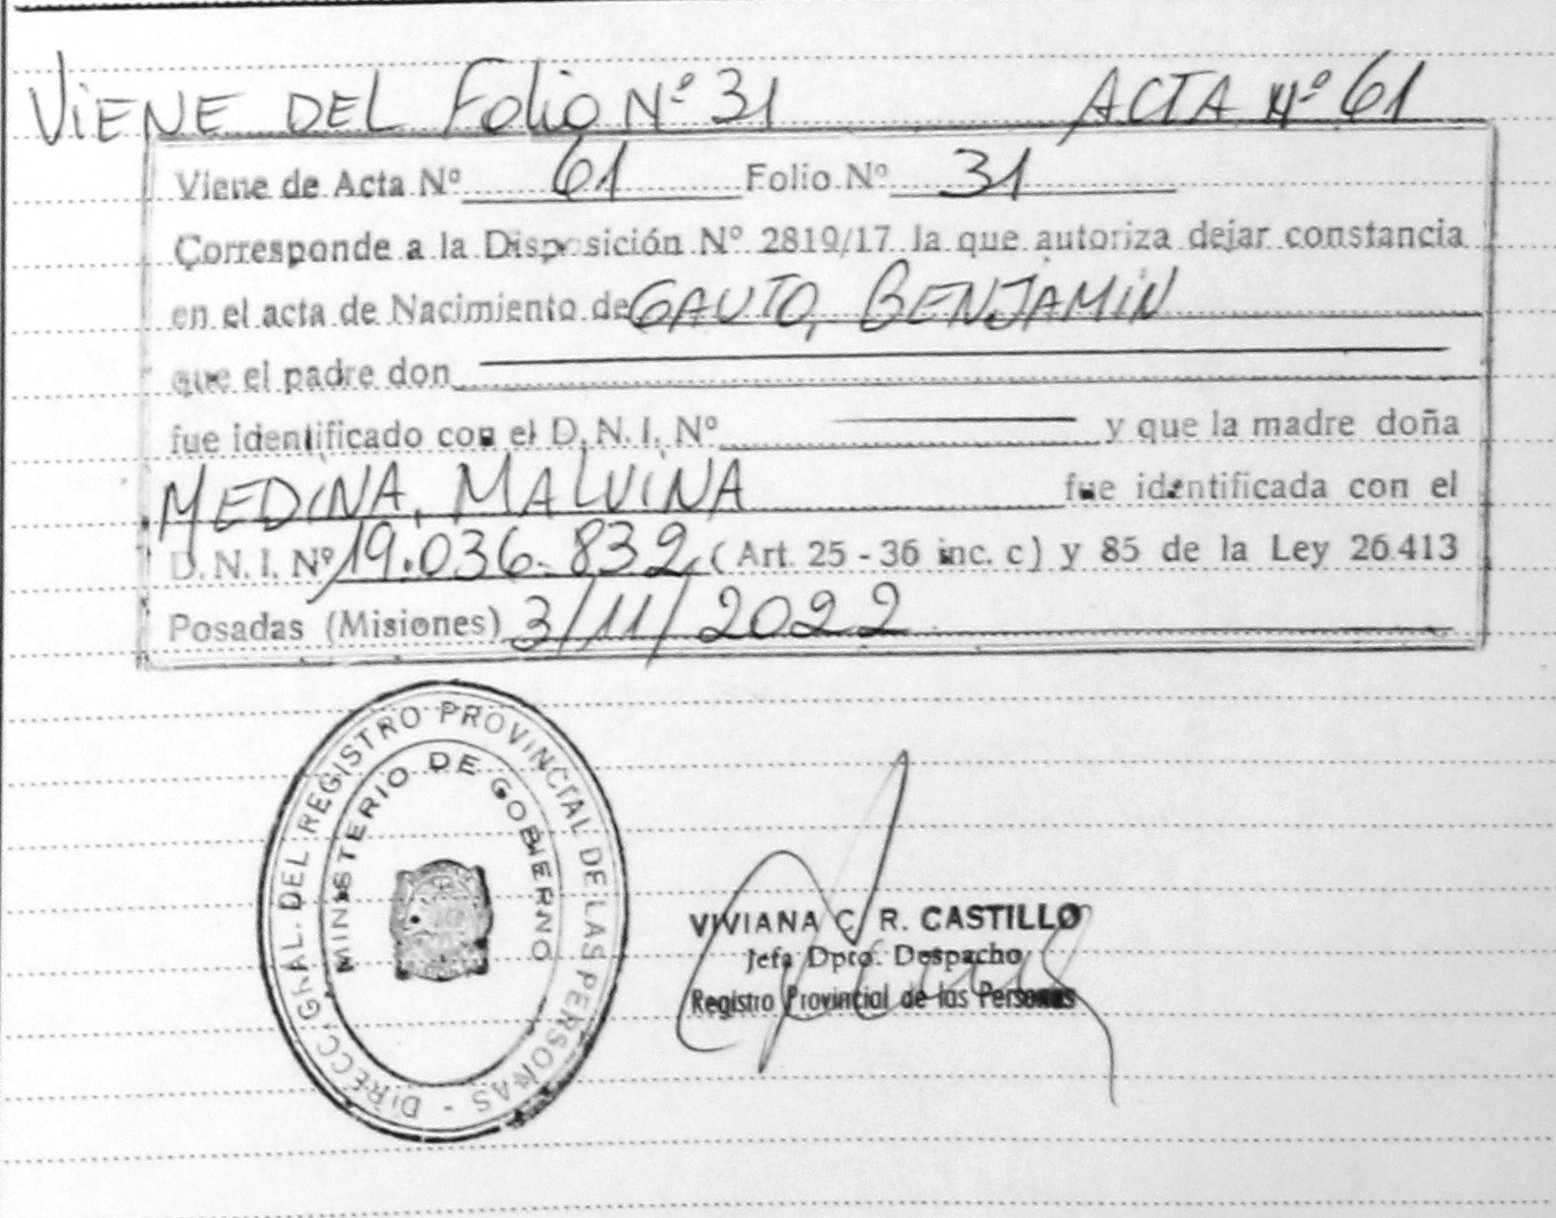 VIENE DEL FOLIO Nº 31 ACTA Nº 61
Viene de Acta Nº 61 Folio Nº 31
Corresponde a la Disposición Nº 2819/17 la que autoriza dejar constancia
en el acta de Nacimiento de GAUTO, BENJAMIN
que el padre don
fue identificado con el D. N. I. Nº y que la madre doña
MEDINA, MALVINA fue identificada con el
D. N. I. Nº 19.036.832 (Art. 25 - 36 inc. c) y 85 de la Ley 26.413
Posadas (Misiones) 3/11/2022
DIRECC. GRAL. DEL REGISTRO PROVINCIAL DE LAS PERSONAS -
MINISTERIO DE GOBIERNO
VIVIANA C. R. CASTILLO
Jefa Dpto. Despacho
Registro Provincial de las Personas